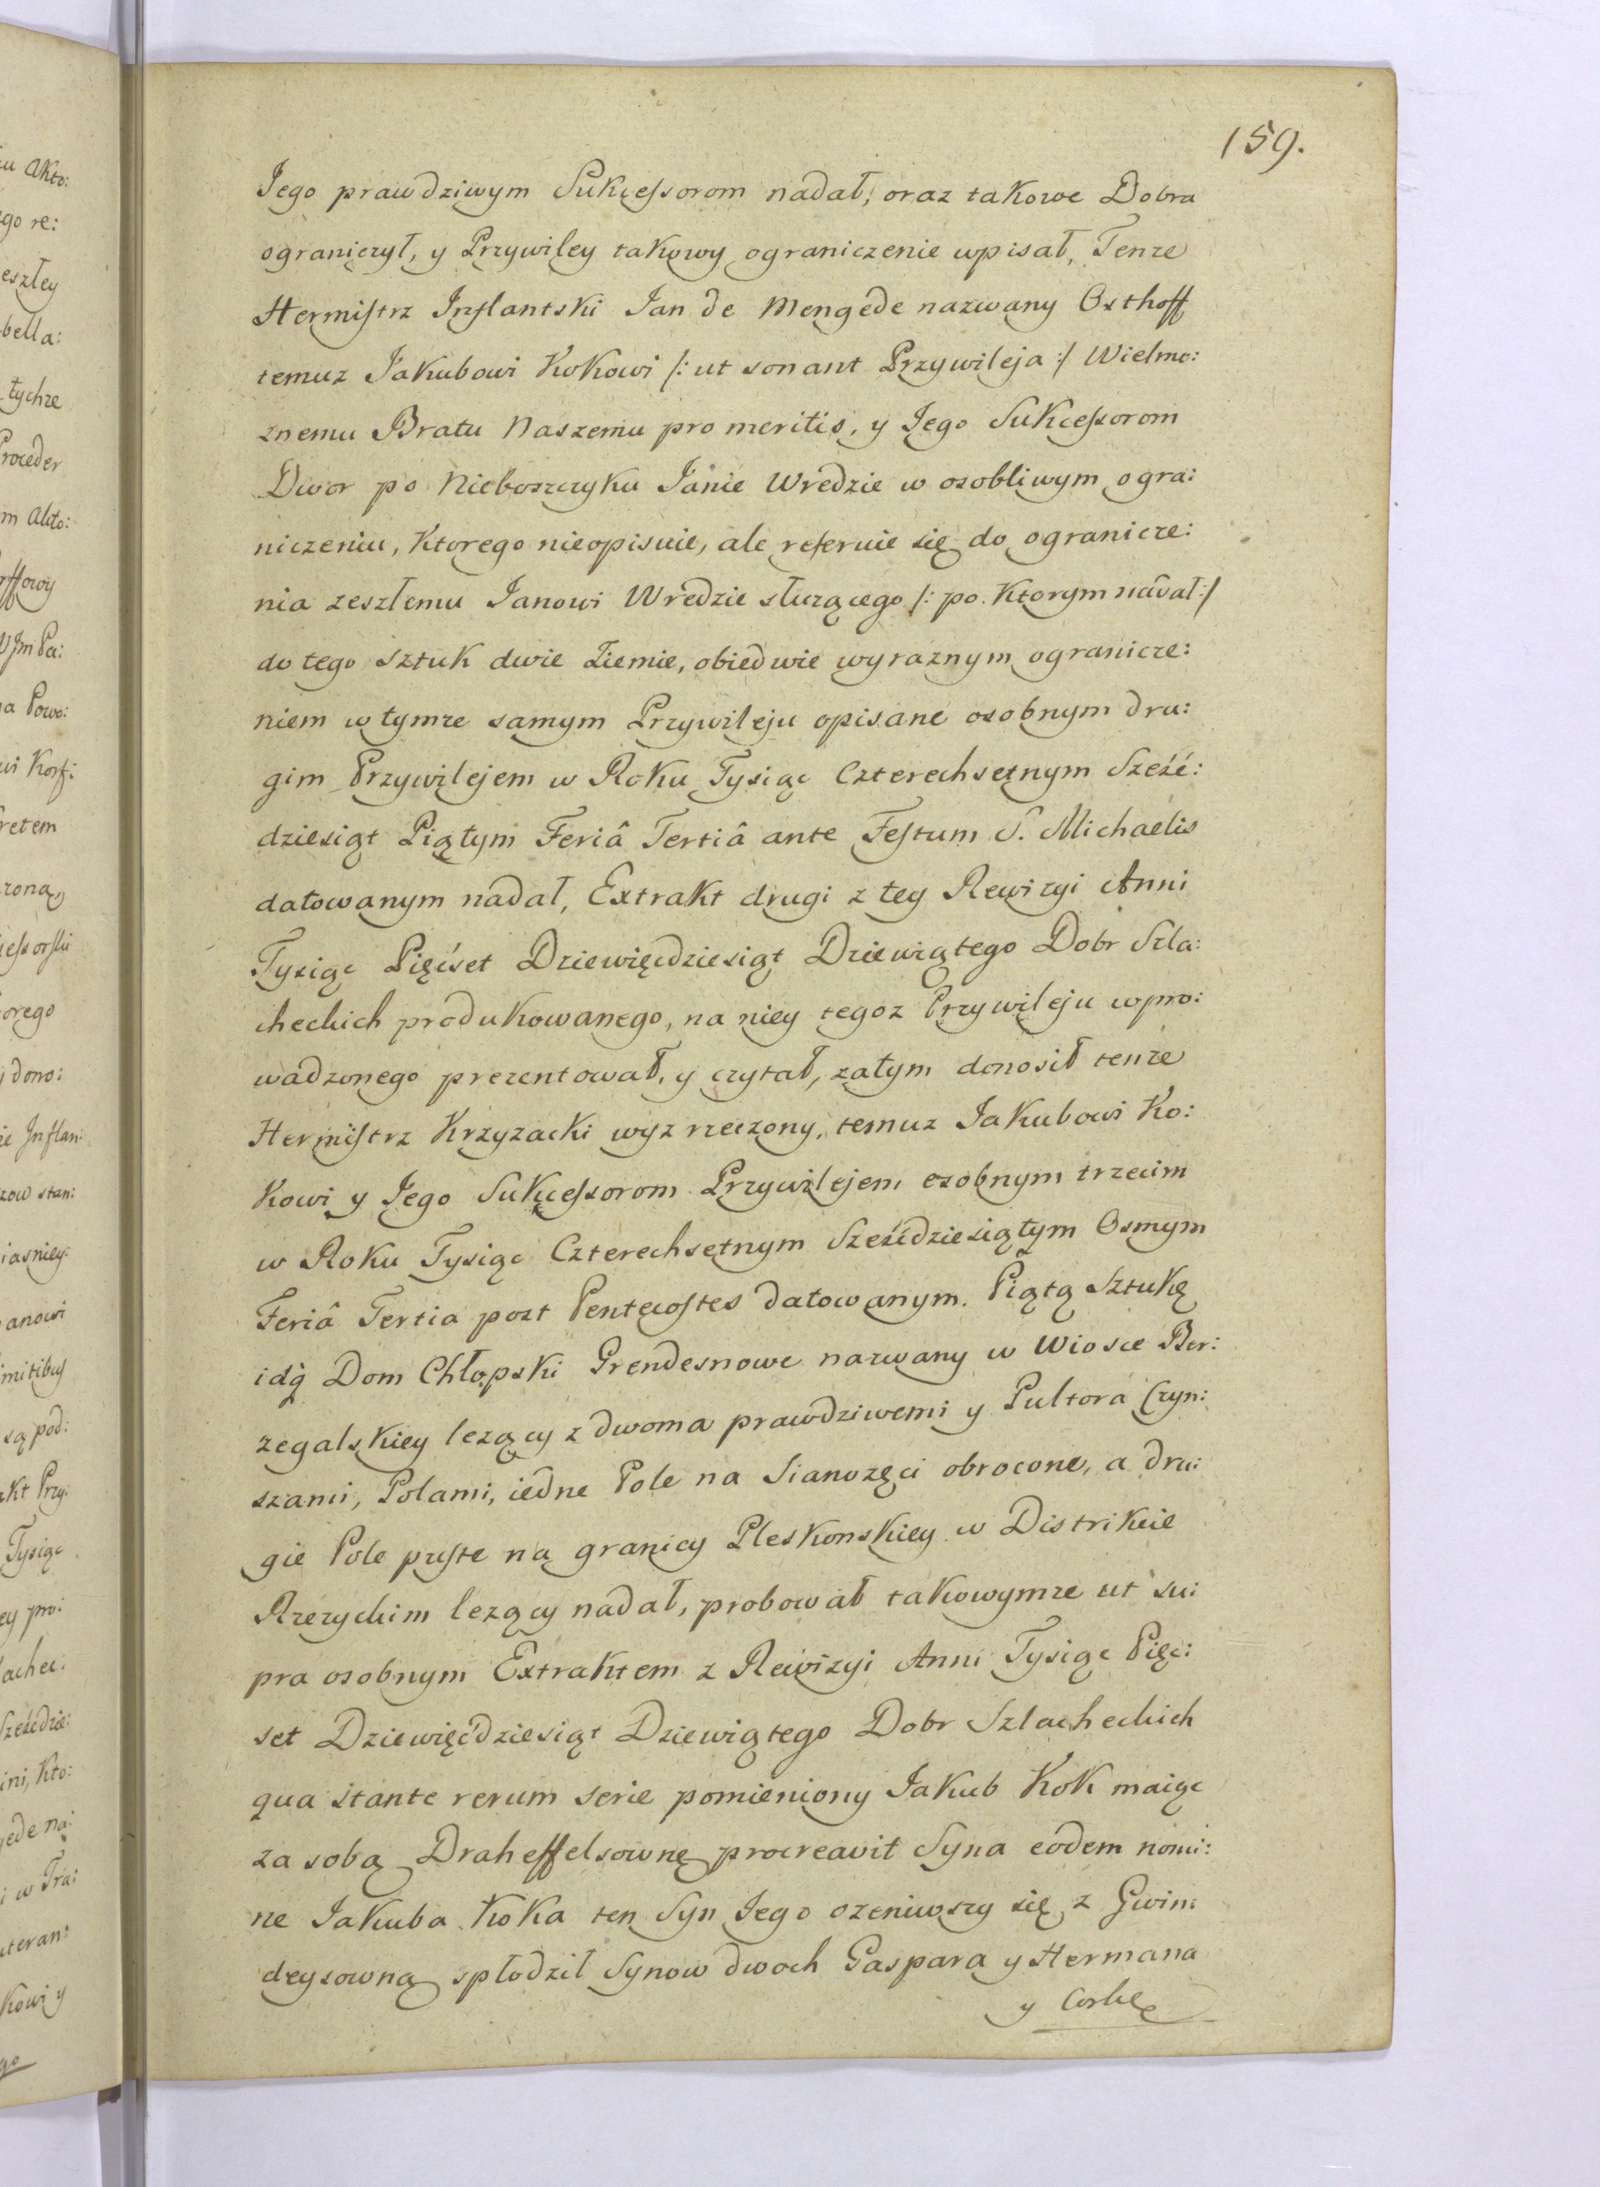 159.
Jego prawdziwym Sukcessorom nadał, oraz takowe Dobra
ograniczył, y Przywiley takowy ograniczenie wpisał, Tenze
Hermistrz Inflantski Jan de Mengede nazwany Osthoff
temuz Jakubowi Kokowi /: ut sonant Przywileja :/ Wielmo:
znemu Bratu Naszemu pro meritis, y Jego Sukcessorom
Dwor po Nieboszczyku Janie Wredzie w osobliwym ogra:
niczeniu, Ktorego nieopisuie, ale referuie się do ogranicze:
nia zeszłemu Janowi Wredzie słuzącego /: po Ktorym nadał :/
do tego Sztuk dwie Ziemie, obiedwie wyraznym ogranicze:
niem w tymze samym Przywileju opisane osobnym dru:
gim Przywilejem w Roku Tysiąc Czterechsetnym Sześć:
dziesiąt Piątym Feriâ Tertiâ ante Festum S. Michaelis
datowanym nadał, Extrakt drugi z tey Rewizyi Anni
Tysiąc Pięćset Dziewięcdziesiąt Dziewiątego Dobr Szla:
checkich produkowanego, na niey tegoz Przywileju wpro:
wadzonego prezentował, y czytał, zatym donosił tenze
Hermistrz Krzyzacki wyz rzeczony, temuz Jakubowi Ko:
kowi y Jego Sukcessorom Przywilejem osobnym trzecim
w Roku Tysiąc Czterechsetnym Sześćdziesiątym Osmym
Feriâ Tertia post Pentecostes datowanym. Piątą Sztukę
idą Dom Chłopski Grendesnowe nazwany w Wiosce Ber:
zegalskiey lezący z dwoma prawdziwemi y Pultora Czyn:
szami, Polami, iedne Pole na Sianozęci obrocone, a dru:
gie Pole puste na granicy Pleskonskiey w Distrikcie
Rzezyckim lezący nadał, probował takowymze ut su:
pra osobnym Extraktem z Rewizyi Anni Tysiąc Pięc:
set Dziewięćdziesiąt Dziewiątego Dobr Szlacheckich
qua stante rerum serie pomieniony Jakub Kok maiąc
za sobą Draheffelsownę procreavit Syna eodem nomi:
ne Jakuba Koka ten Syn Jego ozeniwszy się z Gwin:
deysowną spłodził Synow dwoch Gaspara y Hermana
y Corkę